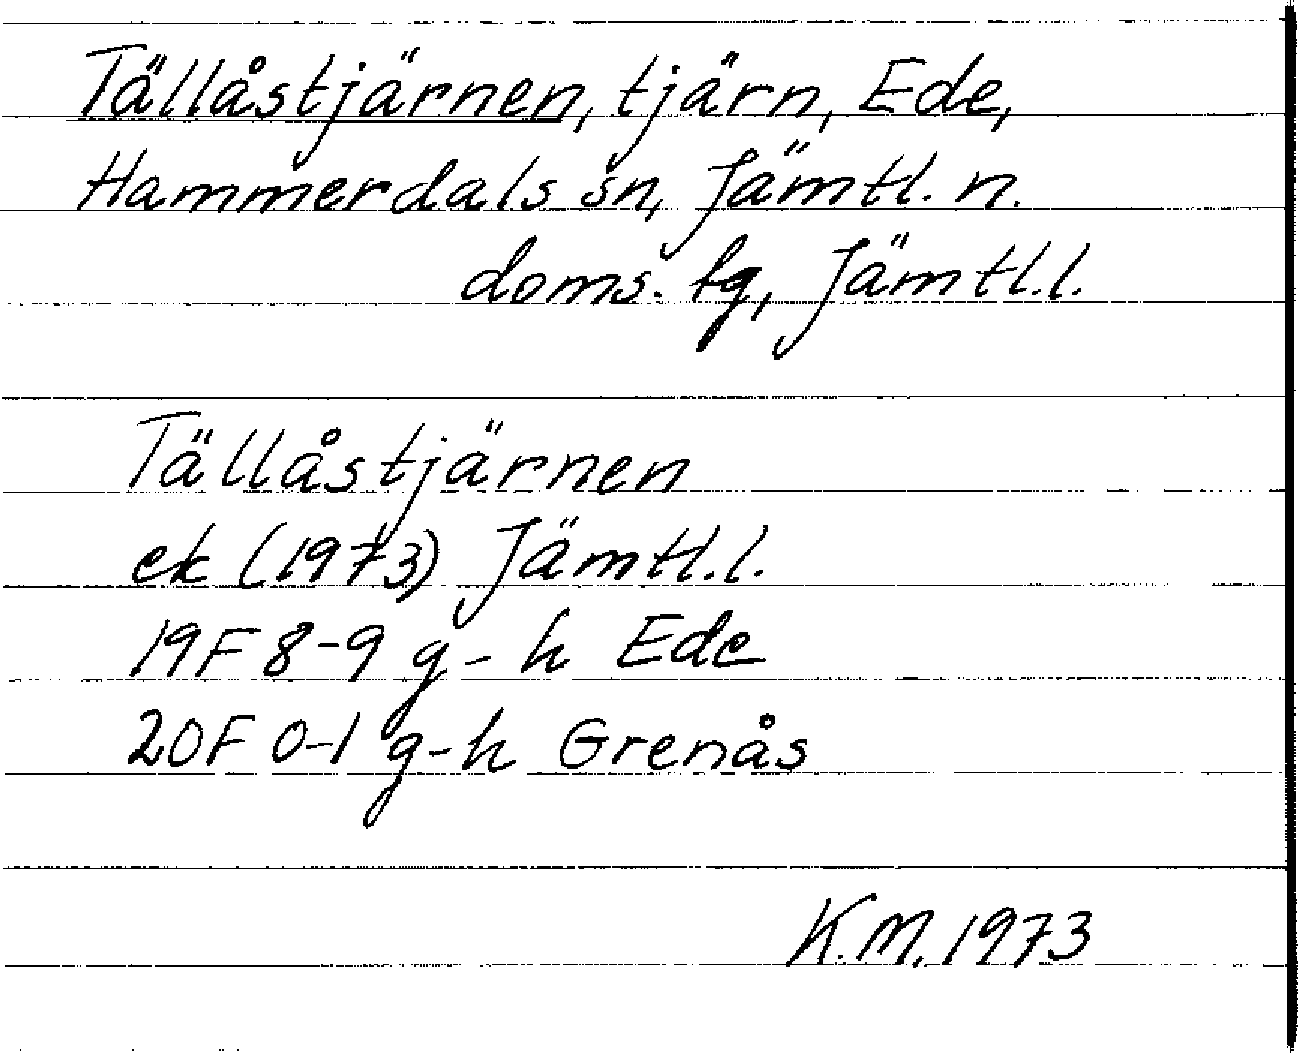 Tällåstjärnen, tjärn, Ede,
Hammerdals sn, Jämtl. n.
doms. tg, Jämtl.l.
Tällåstjärnen
ek (1973) Jämtl.l.
19F 8-9 g-h Ede
20F 0-1 g-h Grenås
K.M. 1973